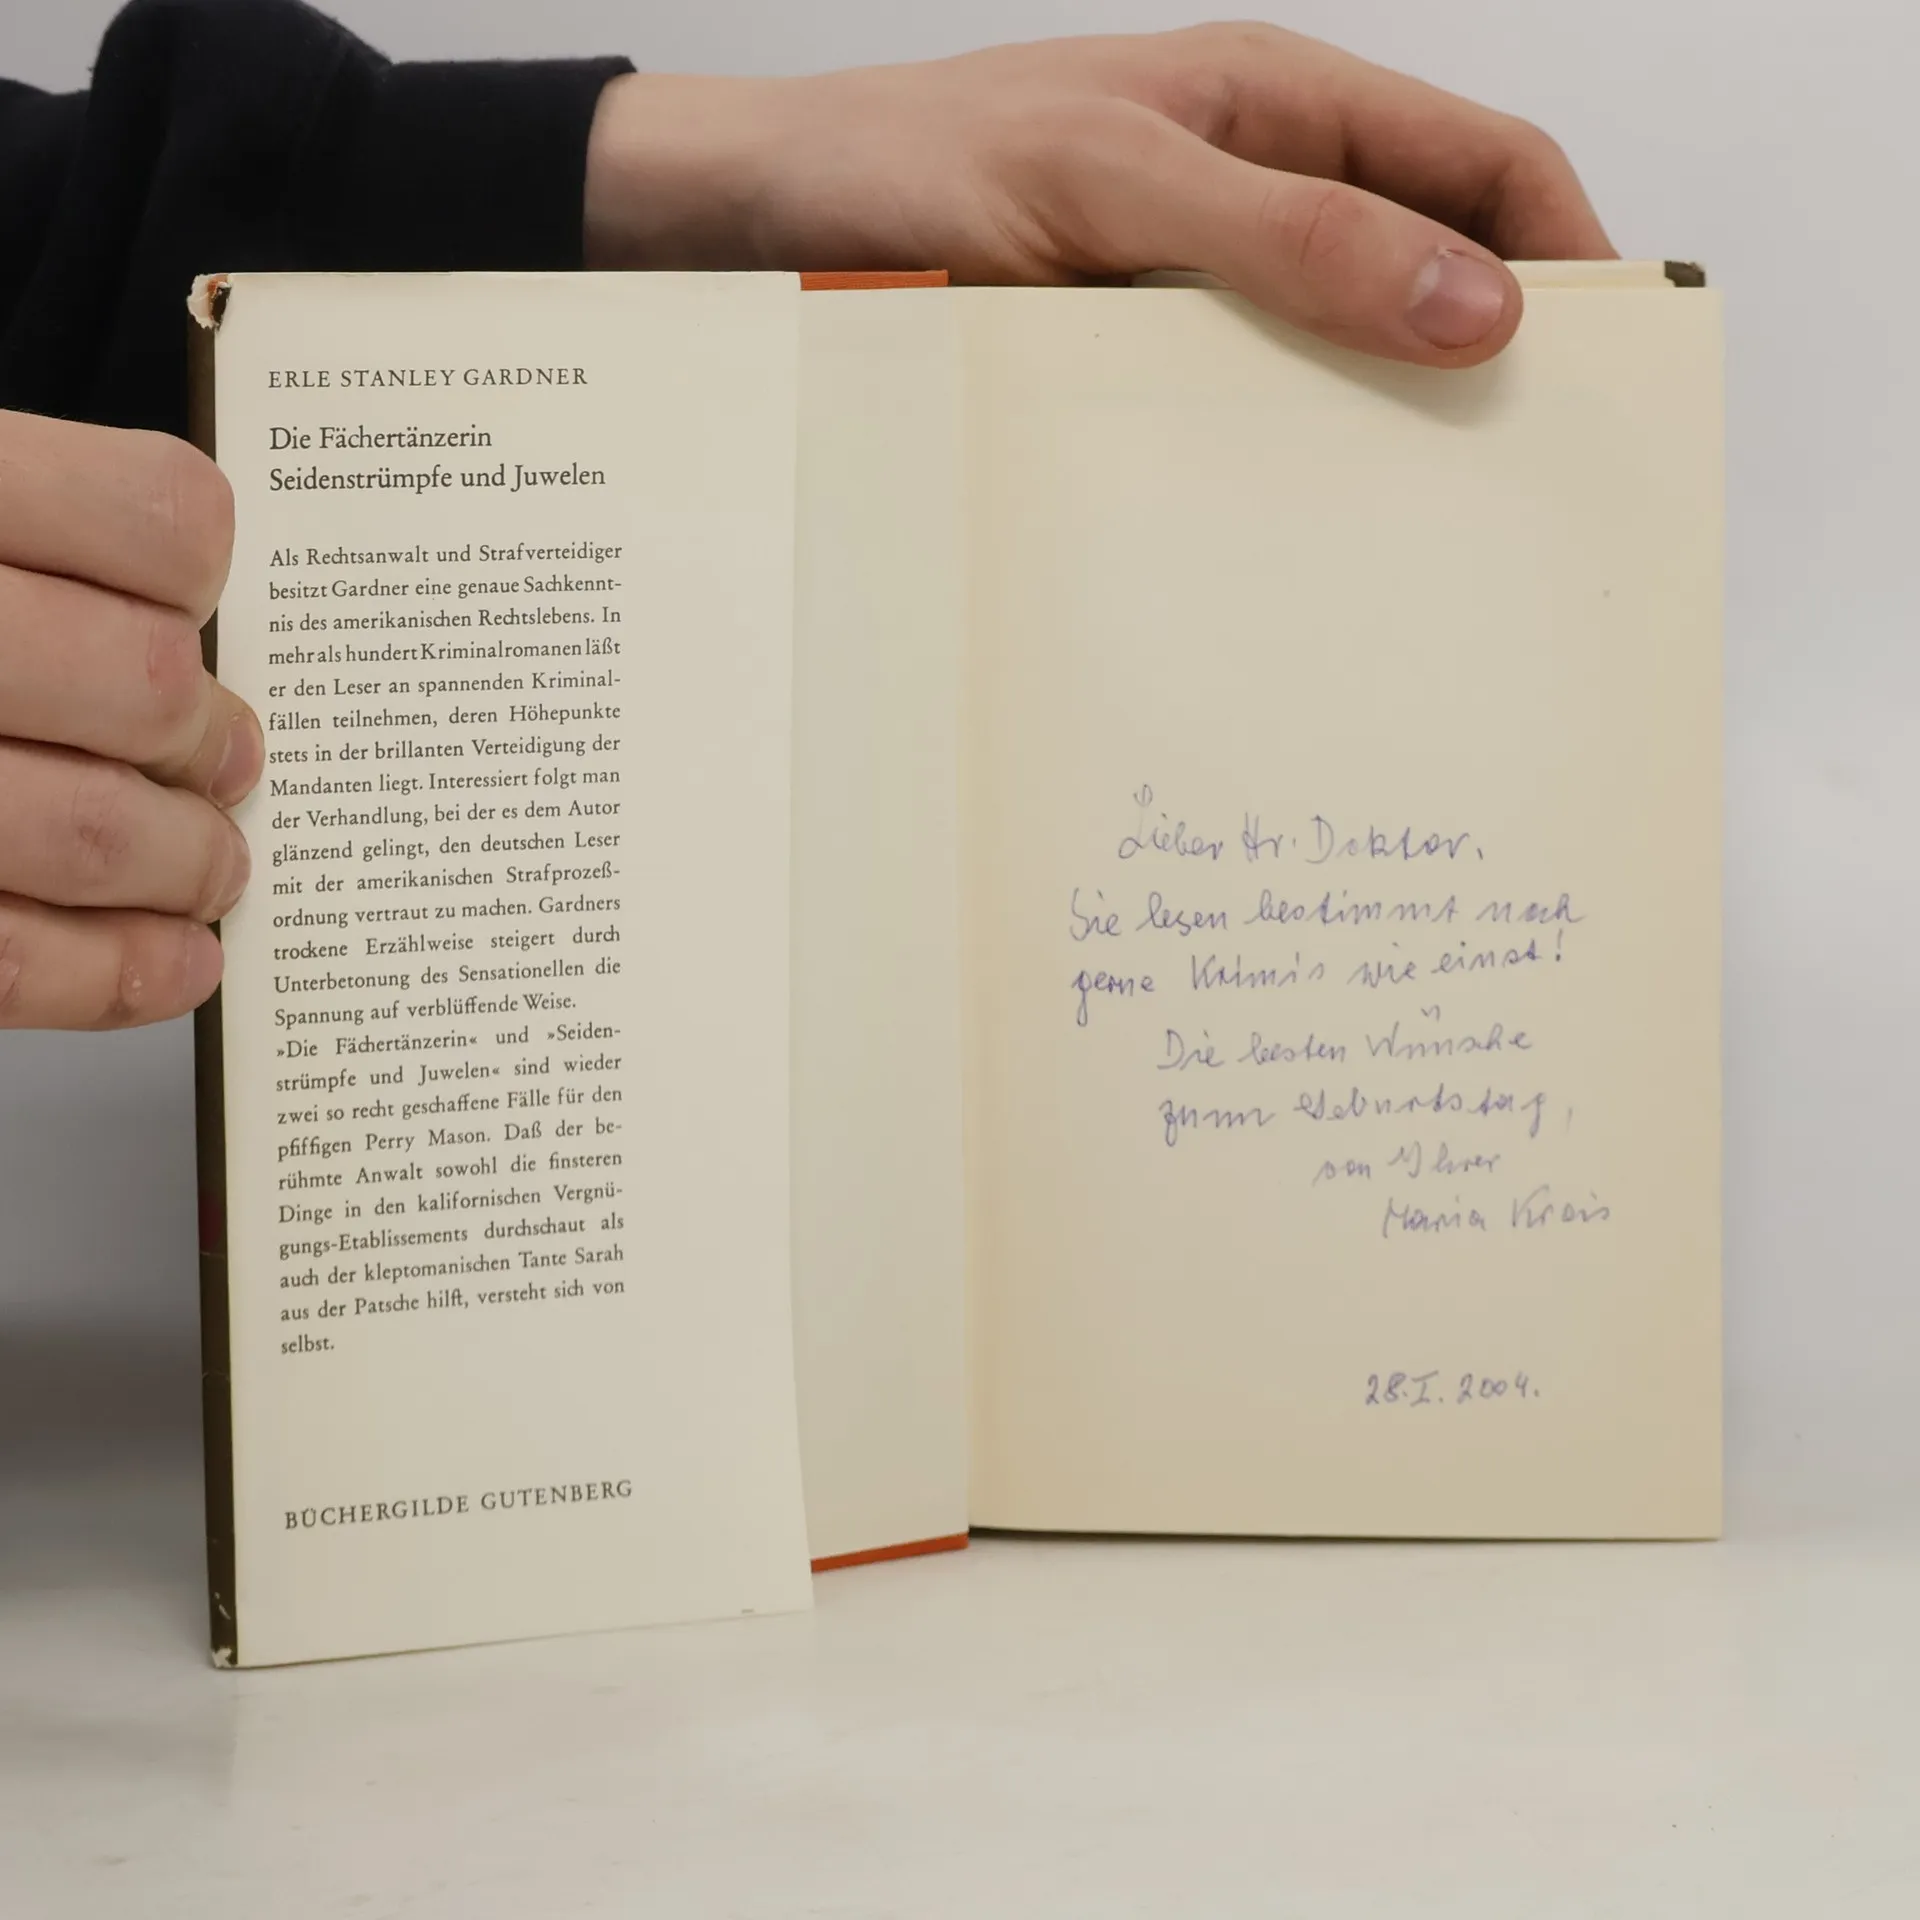 ERLE STANLEY GARDNER
Die Fächertänzerin
Seidenstrümpfe und Juwelen
Als Rechtsanwalt und Strafverteidiger
besitzt Gardner eine genaue Sachkennt-
nis des amerikanischen Rechtslebens. In
mehr als hundert Kriminalromanen läßt
er den Leser an spannenden Kriminal-
fällen teilnehmen, deren Höhepunkte
stets in der brillanten Verteidigung der
Mandanten liegt. Interessiert folgt man
der Verhandlung, bei der es dem Autor
glänzend gelingt, den deutschen Leser
mit der amerikanischen Strafprozeß-
ordnung vertraut zu machen. Gardners
trockene Erzählweise steigert durch
Unterbetonung des Sensationellen die
Spannung auf verblüffende Weise.
»Die Fächertänzerin« und »Seiden-
strümpfe und Juwelen« sind wieder
zwei so recht geschaffene Fälle für den
pfiffigen Perry Mason. Daß der be-
rühmte Anwalt sowohl die finsteren
Dinge in den kalifornischen Vergnü-
gungs-Etablissements durchschaut als
auch der kleptomanischen Tante Sarah
aus der Patsche hilft, versteht sich von
selbst.
BÜCHERGILDE GUTENBERG
Lieber Hr. Doktor,
Sie lesen bestimmt noch
gerne Krimis wie einst!
Die besten Wünsche
zum Geburtstag,
von Ihrer
Maria Krois
28.I. 2004.